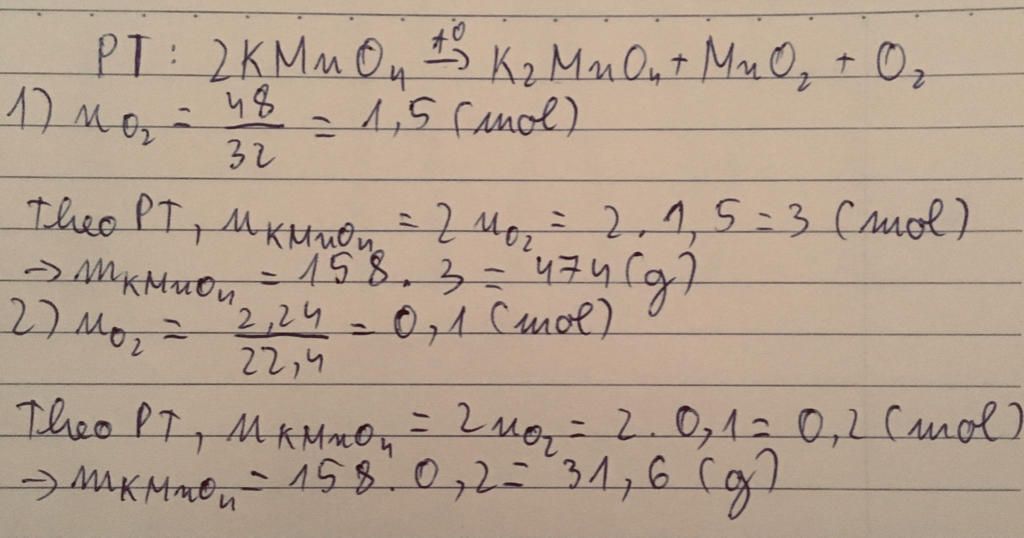 PT: 2KMnO₄ →(t⁰) K₂MnO₄ + MnO₂ + O₂
1) nO₂ = 48/32 = 1,5 (mol)
Theo PT, nKMnO₄ = 2nO₂ = 2.1,5 = 3 (mol)
→ mKMnO₄ = 158.3 = 474 (g)
2) nO₂ = 2,24/22,4 = 0,1 (mol)
Theo PT, nKMnO₄ = 2nO₂ = 2.0,1 = 0,2 (mol)
→ mKMnO₄ = 158.0,2 = 31,6 (g)